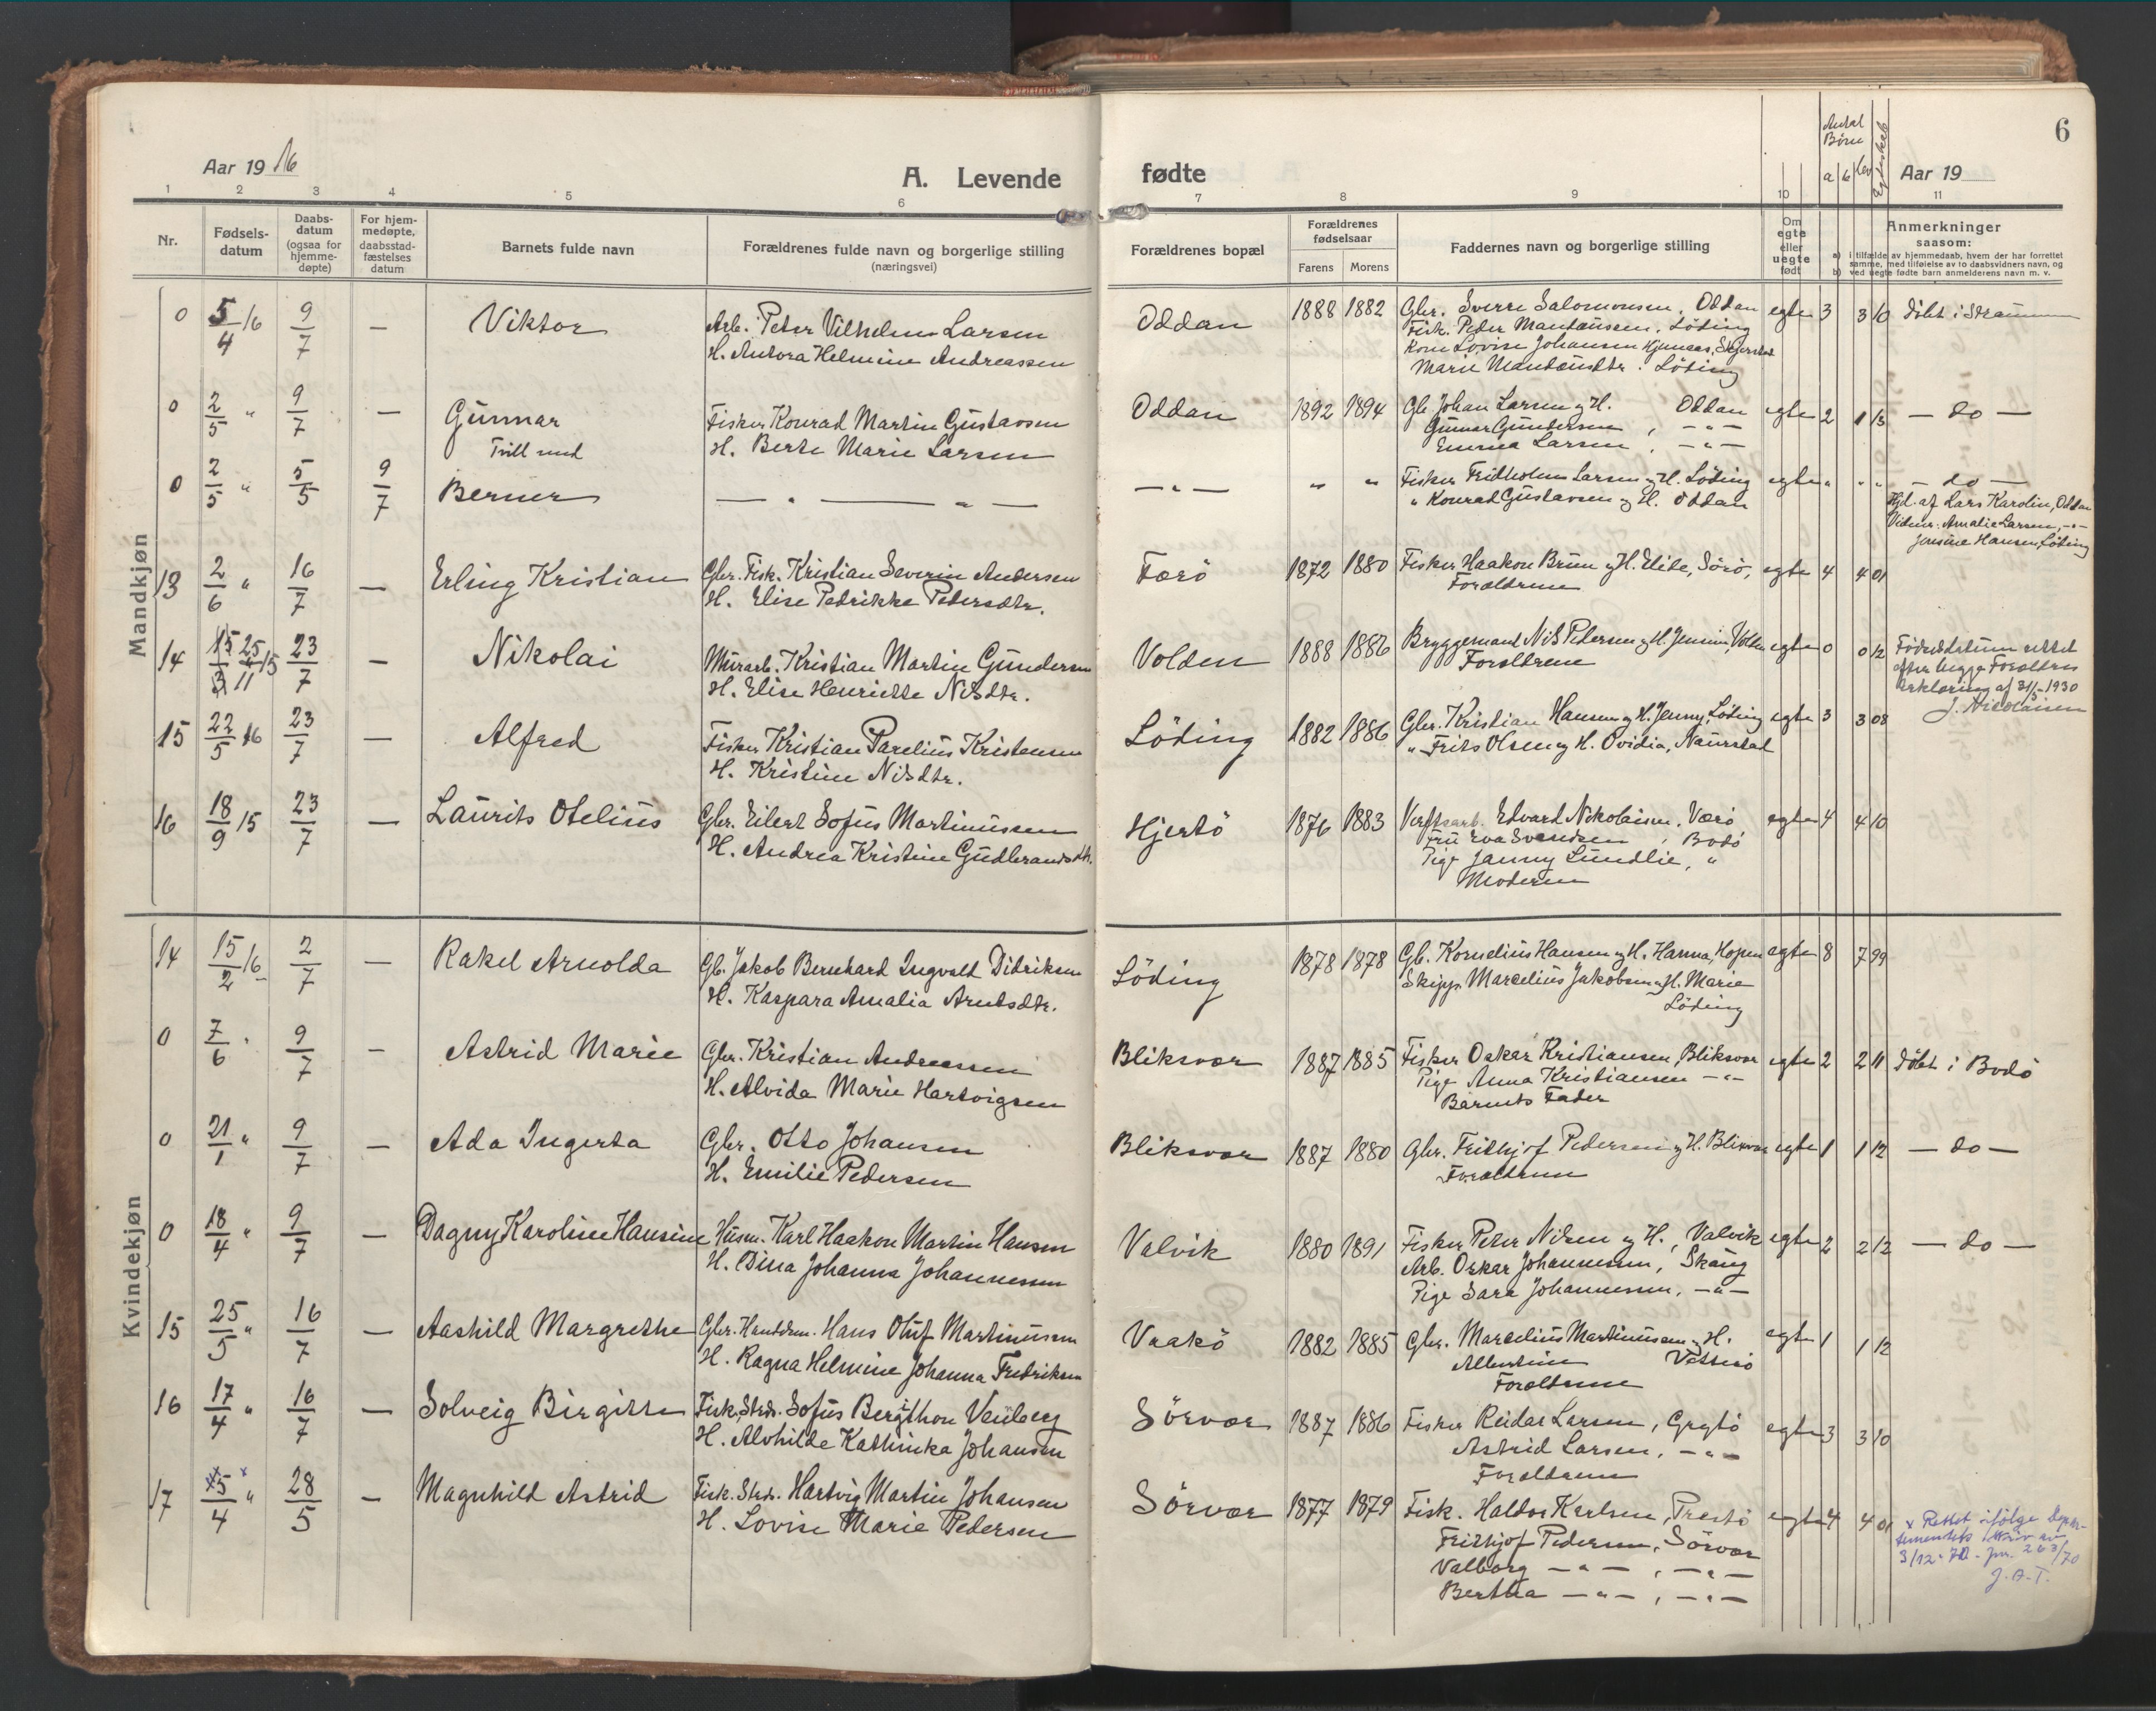 Aar 1916
A. Levende
fødte
6
Antal Børn
a b lev
Aar 19
1 2 3 4 5 6 7 8 9 10 11
Nr.
Fødsels-
datum
Daabs-
datum
(ogsaa for
hjemme-
døpte)
For hjem-
medøpte,
daabsstad-
fæstelses
datum
Barnets fulde navn
Forældrenes fulde navn og borgerlige stilling
(næringsvei)
Forældrenes bopæl
Forældrenes
fødselsaar
Farens Morens
Faddernes navn og borgerlige stilling
Om
egte
eller
uegte
født
Anmerkninger
saasom:
a) i tilfælde av hjemmedaab, hvem der har forrettet
samme, med tilføielse av to daabsvidners navn, og
b) ved uegte fødte barn anmelderens navn m. v.
Mandkjøn
0 5/4 16 9/7 — Viktor Arb. Peter Vilhelm Larsen
H. Antora Helmine Andreassen
Oddan 1888 1882 Gbr. Sverre Salomonsen, Oddan egte 3 3 10 Döbt i Straumen
Fisk. Peder Mantausen, Löding
Kone Lovise Johansen
Marie Mantausdtr. Löding
0 2/5 " 9/7 — Gunnar Fisker Konrad Martin Gustavsen
Tvill. med H. Berte Marie Larsen
Oddan 1892 1894 Gb. Johan Larsen og H. Oddan egte 2 1 13 — do —
Gunnar Gundersen, — " —
Emma Larsen, — " —
0 2/5 " 5/5 9/7 Berner — " — — " —
— " — " " Fisker Fridholm Larsen og H. Löding egte " " " — do —
" Konrad Gustavsen og H. Oddan
Hjd. af Lars Karolin, Oddan
Vidner: Amalie Larsen, — " —
Jensine Hansen, Löding
13 2/6 " 16/7 — Erling Kristian Gbr. Fisk. Kristian Severin Andersen
H. Elise Pedrikke Pedersdtr.
Farö 1872 1880 Fisker Haakon Brun og H. Elise, Sörö, egte 4 4 01
Forældrene
14 15/3 25/11 15 23/7 — Nikolai Murarb. Kristian Martin Gundersen
H. Elise Henriette Nilsdtr.
Volden 1888 1886 Bryggemand Nils Pedersen og H. Jensine, Volden egte 0 0 12
Forældrene
Födselsdatum rettet
efter begge Forældres
erklæring af 31/5-1930
J. Nicolaisen
15 22/5 16 23/7 — Alfred Fisker Kristian Parelius Kristensen
H. Kristine Nilsdtr.
Löding 1882 1886 Gbr. Kristian Hansen og H. Jenny, Löding egte 3 3 08
" Frits Olsen og H. Ovidia, Naurstad
16 18/9 15 23/7 — Laurits Otelius Gbr. Eilert Sofus Martinussen
H. Andrea Kristine Gudbrandsdtr.
Hjertö 1876 1883 Verftsarb. Edvard Nikolaisen, Værö egte 4 4 10
Fru Eva Svendsen, Bodö
Pige Janny Lundlie, "
Moderen
Kvindekjøn
14 15/2 16 2/7 — Rakel Arnolda Gb. Jakob Bernhard Ingvald Didriksen
H. Kaspara Amalia Arntsdtr.
Löding 1878 1878 Gb. Kornelius Hansen og H. Hanna, Hopen egte 8 7 99
Skipp. Marselius Jakobsen og H. Marie
Löding
0 7/6 " 9/7 — Astrid Marie Gbr. Kristian Andreassen
H. Alvida Marie Hartvigsen
Bliksvær 1887 1885 Fisker Oskar Kristiansen, Bliksvær egte 2 2 11 Döbt i Bodö
Pige Anna Kristiansen — " —
Barnets Fader
0 21/1 " 9/7 — Ada Ingerta Gbr. Otto Johansen
H. Emilie Pedersen
Bliksvær 1887 1880 Gbr. Frithjof Pedersen og H. Bliksvær egte 1 1 12 — do —
Forældrene
0 18/4 " 9/7 — Dagny Karoline Hansine Husm. Karl Haakon Martin Hansen
H. Dina Johanna Johannessen
Valvik 1880 1891 Fisker Peter Nilsen og H., Valvik egte 2 2 12 — do —
Arb. Oskar Johannessen, Skaug
Pige Sara Johannessen, — " —
15 25/5 " 16/7 — Aashild Margrethe Gbr. Handelsm. Hans Oluf Martinussen
H. Ragna Helmine Johanna Fredriksen
Vaakö 1882 1885 Gbr. Marselius Martinussen og H. egte 1 1 12
Albertine
Forældrene
16 17/4 " 16/7 — Solveig Birgitte Fisk. Strds. Sofus Bergthon Venberg
H. Alvhilde Kathinka Johansen
Sörvær 1887 1886 Fisker Reidar Larsen, Grytö egte 3 3 10
Astrid Larsen, — " —
Forældrene
17 x5/4 x " 28/5 — Magnhild Astrid Fisk. Strds. Hartvig Martin Johansen
H. Lovise Marie Pedersen
Sörvær 1877 1879 Fisk. Haldor Karlsen, Prestö egte 4 4 01
Frithjof Pedersen, Sörvær
Valborg — " —, — " —
Bertha — " —, — " —
x Rettet ifölge Depar-
tementets skriv av
3/12-70. jnr. 263/70
J.A.T.